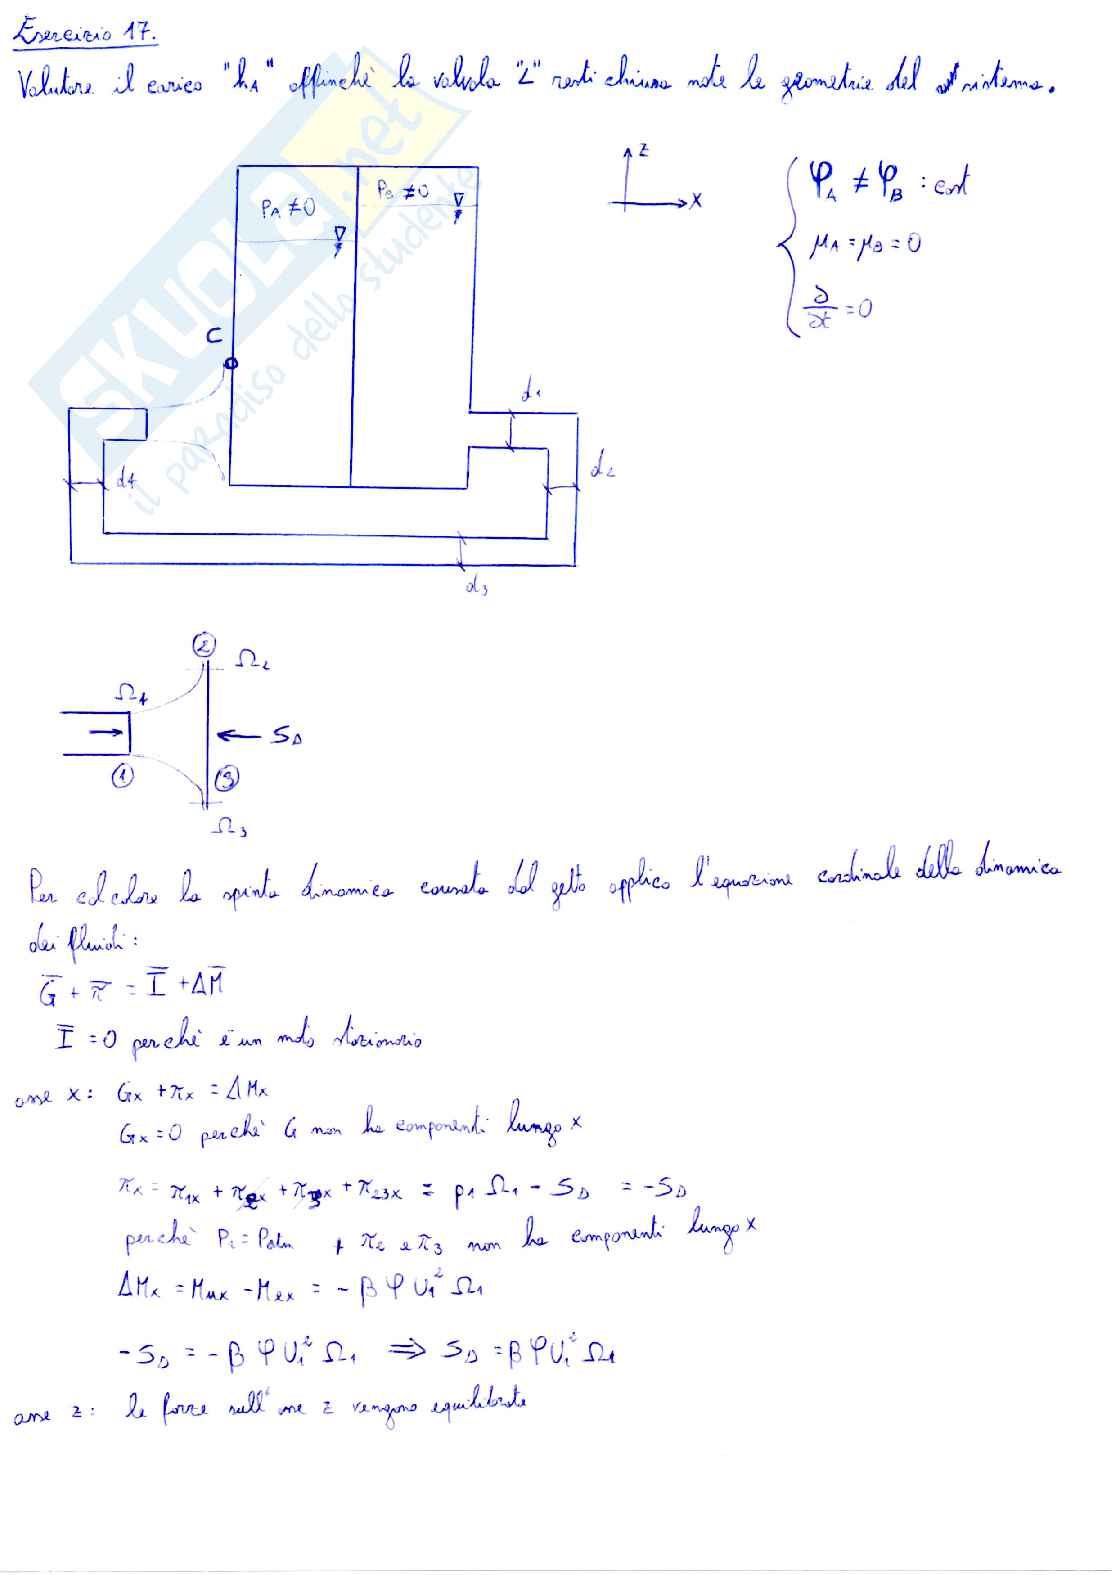 Esercizio 17.
Valutare il carico "hA" affinchè la valvola "L" resti chiusa note le geometrie del sistema.
z
x
φA ≠ φB : cost
μA = μB = 0
∂/∂t = 0
PA ≠ 0
PB ≠ 0
C
d1
d2
d4
d3
SKUOLA.net
il paradiso dello studente
2
Ω2
Ω1
SD
1
3
Ω3
Per calcolare la spinta dinamica causata dal getto applico l'equazione cardinale della dinamica
dei fluidi:
G + π = I + ΔM
I = 0 perchè è un moto stazionario
asse x: Gx + πx = ΔMx
Gx = 0 perchè G non ha componenti lungo x
πx = π1x + π2x + π3x + π23x = p1 Ω1 - SD = -SD
perchè P1 = Patm + π2 e π3 non ha componenti lungo x
ΔMx = Mux - Mex = - β φ U1² Ω1
-SD = - β φ U1² Ω1 ⇒ SD = β φ U1² Ω1
asse z: le forze sull'asse z vengono equilibrate